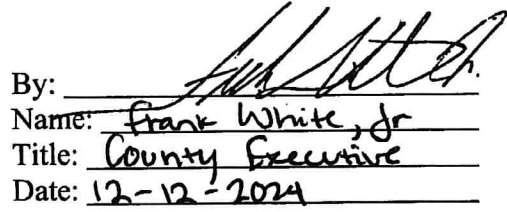 By:
Name: Frank White, Jr
Title: County Executive
Date: 12-12-2024